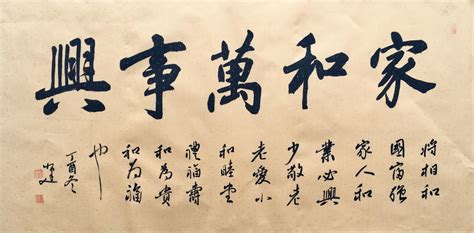 家和萬事興
將相和
國富強
家人和
業必興
少敬老
老愛小
和睦堂
禮福壽
和為貴
和為福
也
丁酉冬